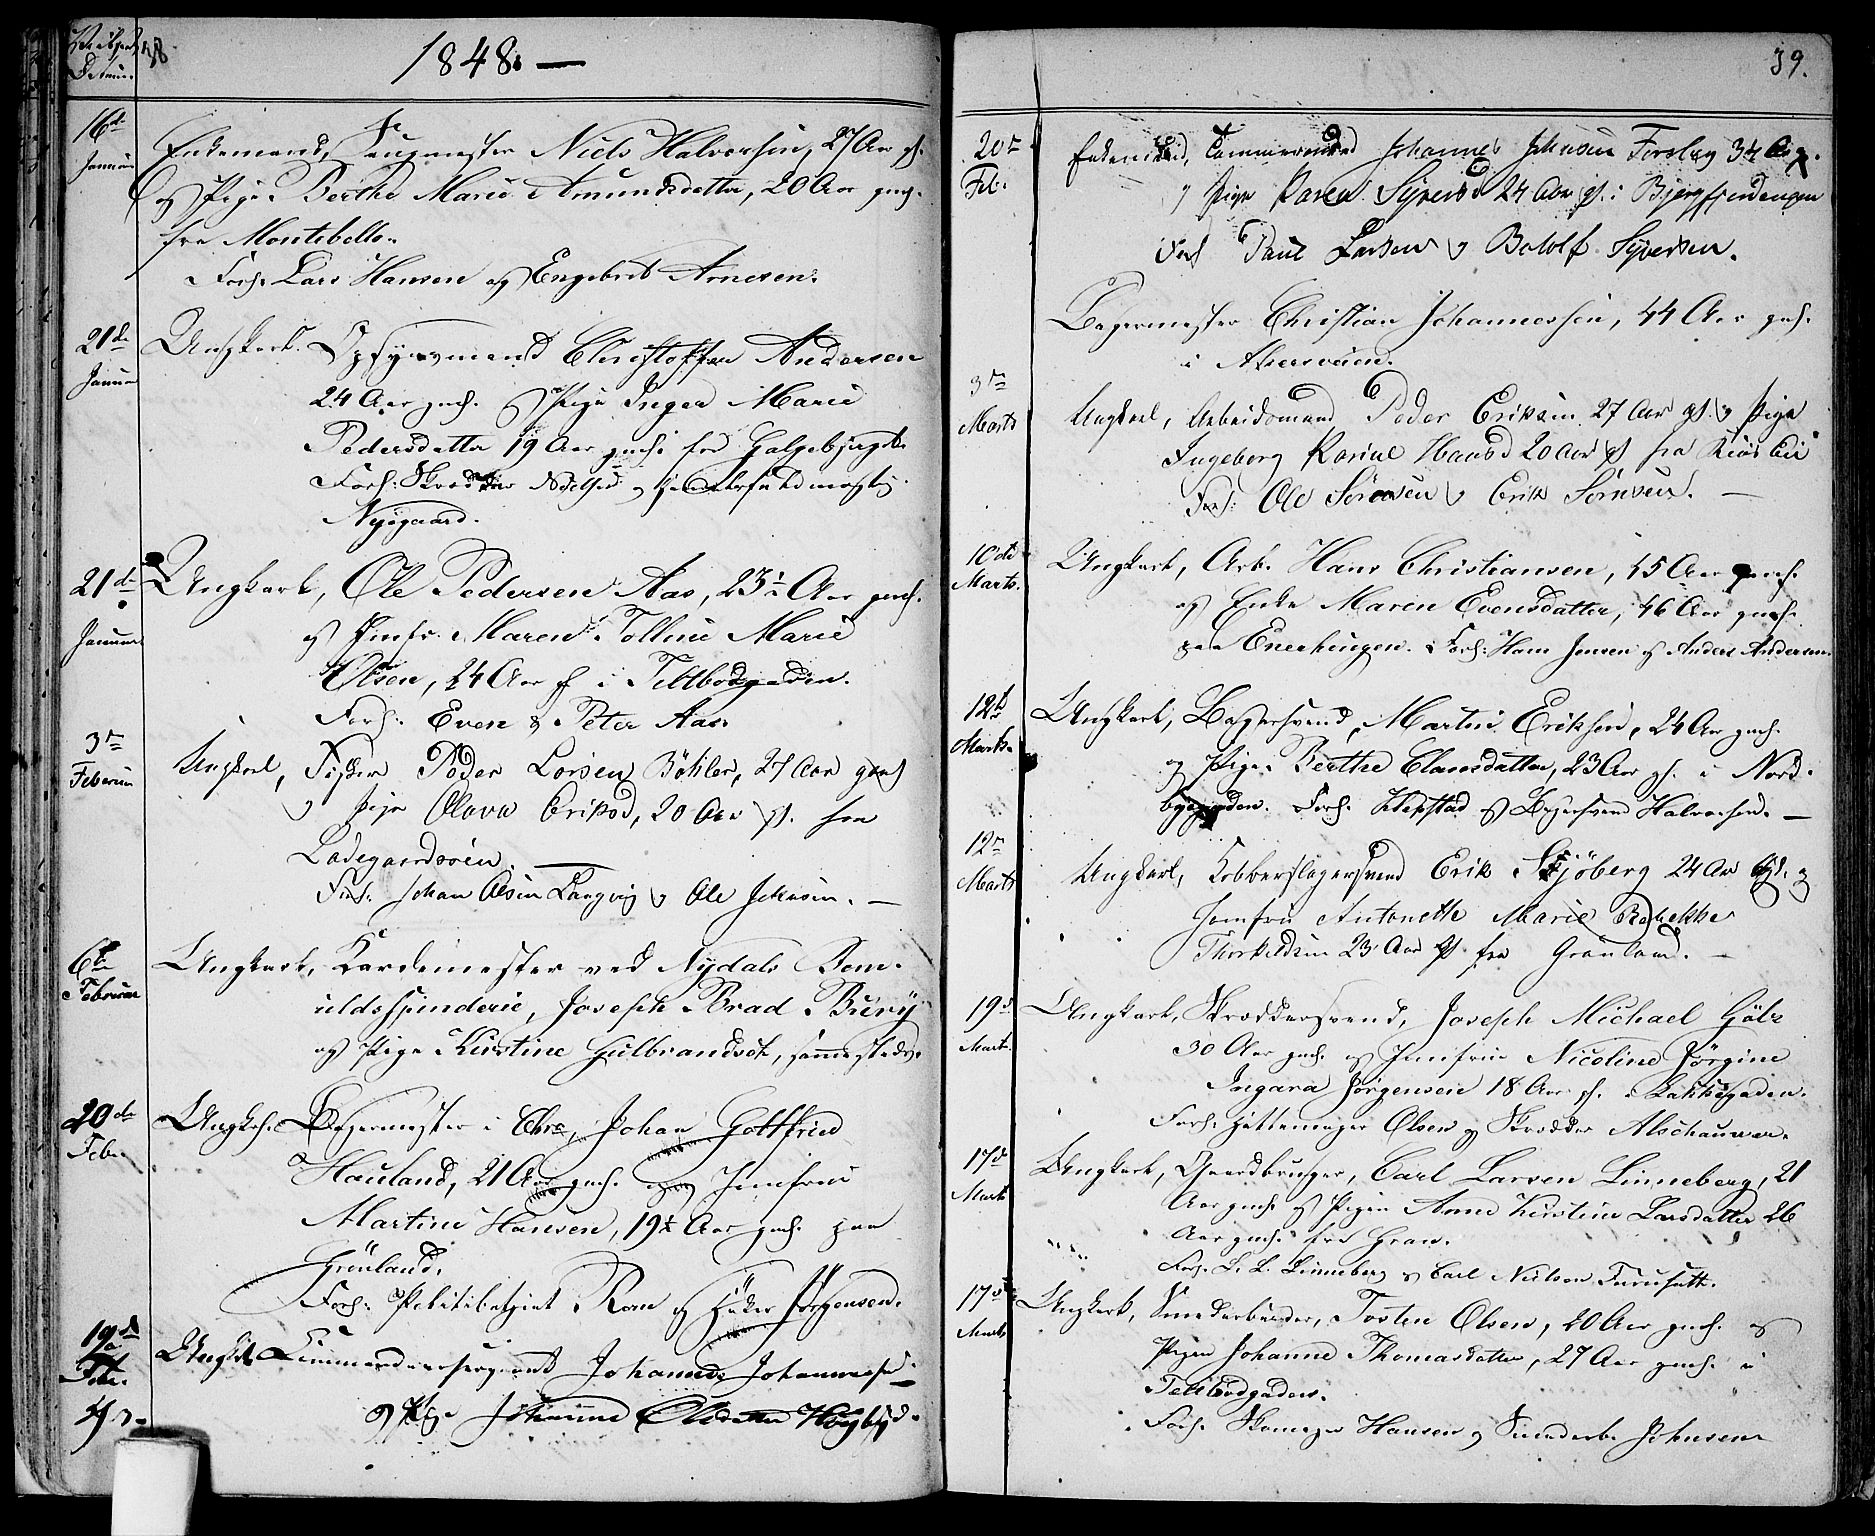 38
1848. —
16de
Januar
Enkemand, Niels Halversen, 27 Aar gl.
og Pige Berthe Marie Amundsdatter, 20 Aar gml.
fra Montebello.
Forl: Lars Hansen og Engebret Arnesen.
21de
Januar
Ungkarl. Opsynsmand Christoffer Andersen
24 Aar gml. og Pige Inger Marie
Pedersdatter 19 Aar gml. fra Galgebjerget.
Forl: Skrædder
Nysgaard.
21de
Januar
Ungkarl, Ole Pedersen Aas, 23½ Aar gml.
og Jmfr. Maren Tolline Marie
Olsen, 24 Aar gl i Teltbodgaden.
Forl: Even & Peter Aas.
3de
Februar
Ungkarl, Fisker Peder Larsen Böhler, 27 Aar gml
og Pige Olava Eriksd, 20 Aar gl. fra
Ladegaardsöen. —
Forl: Johan Olsen Langvig og Ole Johnsen. —
6te
Februar
Ungkarl, Kardemester ved Nydals Bom-
uldsspinderie, Joseph Brad Bury
og Pige Kirstine Gulbrandsdt, sammesteds.
20de
Feb.
Ungk. Bagermester i Chra, Johan Gottfried
Hauland, 21 Aar gml. og Jomfrue
Martine Hansen, 19½ Aar gml. paa
Grönland.
Forl: Politibetjent Rom og Jörgensen.
19de
Feb.
Ungkl Commandeersergeant Johannes Johannesse
og Pige Johanne Olsdatter
39.
20de
Feb.
Enkemand, Tömmermand Johannes Johnsen Forslag 34 Aar g.
og Pige Karen Syversd 24 Aar gl. i
Forl Paul Larsen og Botolf Syversen.
Bagermester Christian Johannessen, 44 Aar gml.
i Akersveien.
3de
Marts
Ungkarl, Arbeidsmand Peder Eriksen 27 Aar gl. og Pige
Ingeborg Karine Hansd 20 Aar gl fra
Forl: Ole Sörensen og Erik Sörnsen. —
10de
Marts.
Ungkarl, Arb. Hans Christiansen, 45 Aar gml.
og Enke Maren Evensdatter, 46 Aar gml.
paa Enerhaugen. Forl: Hans Jensen og Anders Andersen.
12te
Marts.
Ungkarl, Bagersvend, Martin Eriksen, 24 Aar gml.
og Pige Berthe Clausdatter, 23 Aar gl. i Nord-
bygaden. Forl: Klepstad og Bagersvend Halvorsen. —
12te
Marts
Ungkarl, Kobberslagersvend Erik Sjöberg 24 Aar gl. og
Jomfru Antonette Marie Rebekke
Thorkildsen 23 Aar gl. fra Grönland. —
19de
Marts
Ungkarl, Skræddersvend, Joseph Michael Götz
30 Aar gml. og Jomfrue Nicoline Jörgine
Ingara Jörgensen 18 Aar gl. i Lakkegaden.
Forl: Olsen og Skrædder Alschauwer.
17de
Marts
Ungkarl, Gaardbruger, Carl Larsen Linneberg, 21
Aar gml. og Pigen Anne Kirstine Larsdatter 26
Aar gml. fra Gran.
Forl: L. L. Linneberg og Carl Nielsen Furuset.
17de
Marts
Ungkarl, Torsten Olsen, 20 Aar gml. og
Pigen Johanne Thomasdatter, 27 Aar gml. i
Teltbodgaden.
Forl: Skomager Hansen og Johnsen